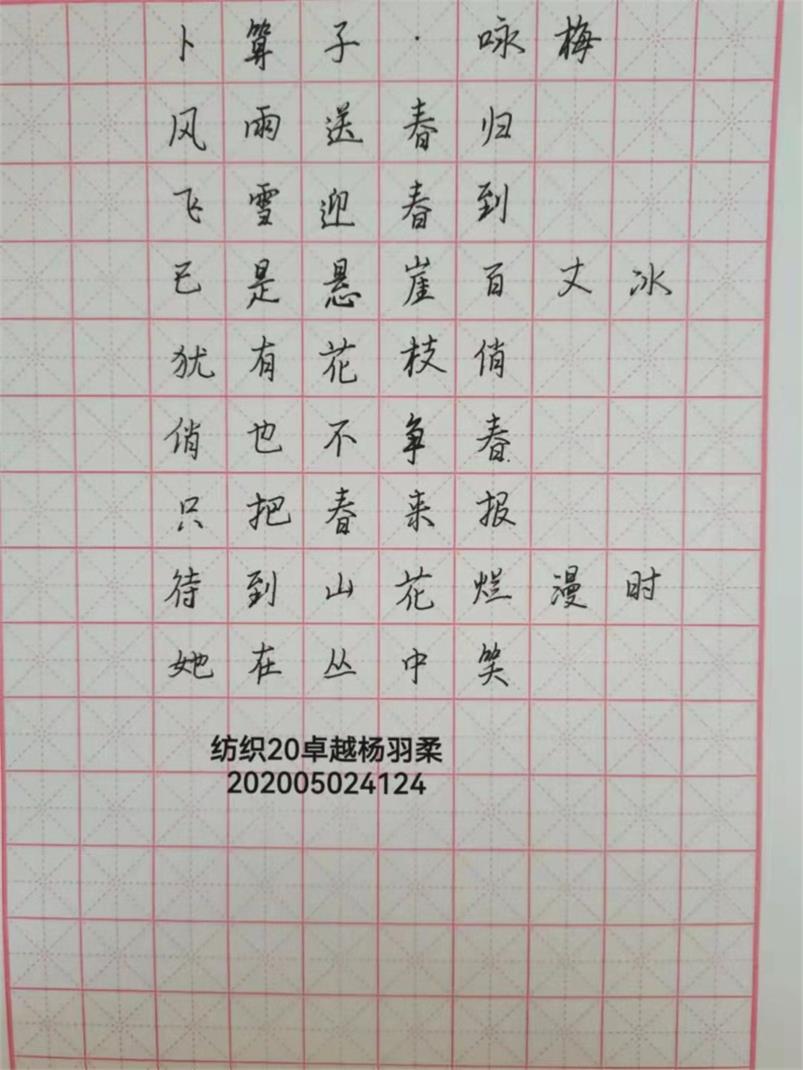 卜算子·咏梅
风雨送春归
飞雪迎春到
已是悬崖百丈冰
犹有花枝俏
俏也不争春
只把春来报
待到山花烂漫时
她在丛中笑
纺织20卓越杨羽柔
202005024124